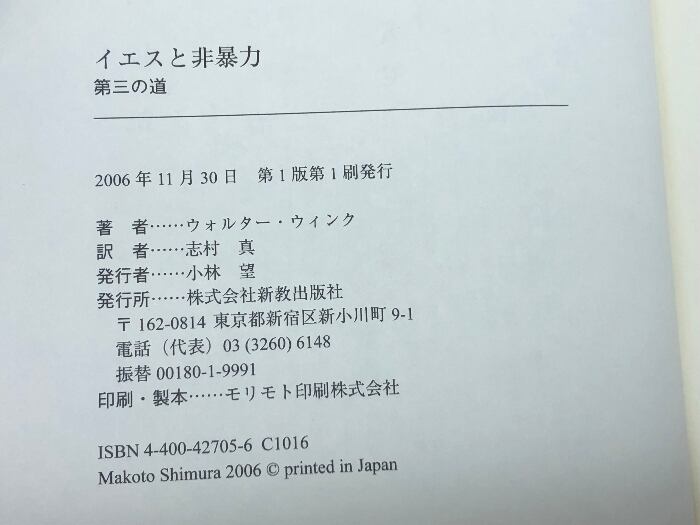 イエスと非暴力
第三の道
2006 年 11 月 30 日　第 1 版第 1 刷発行
著　者……ウォルター・ウィンク
訳　者……志村　真
発行者……小林　望
発行所……株式会社新教出版社
〒 162-0814 東京都新宿区新小川町 9-1
電話（代表）03 (3260) 6148
振替 00180-1-9991
印刷・製本……モリモト印刷株式会社
ISBN 4-400-42705-6 C1016
Makoto Shimura 2006 © printed in Japan